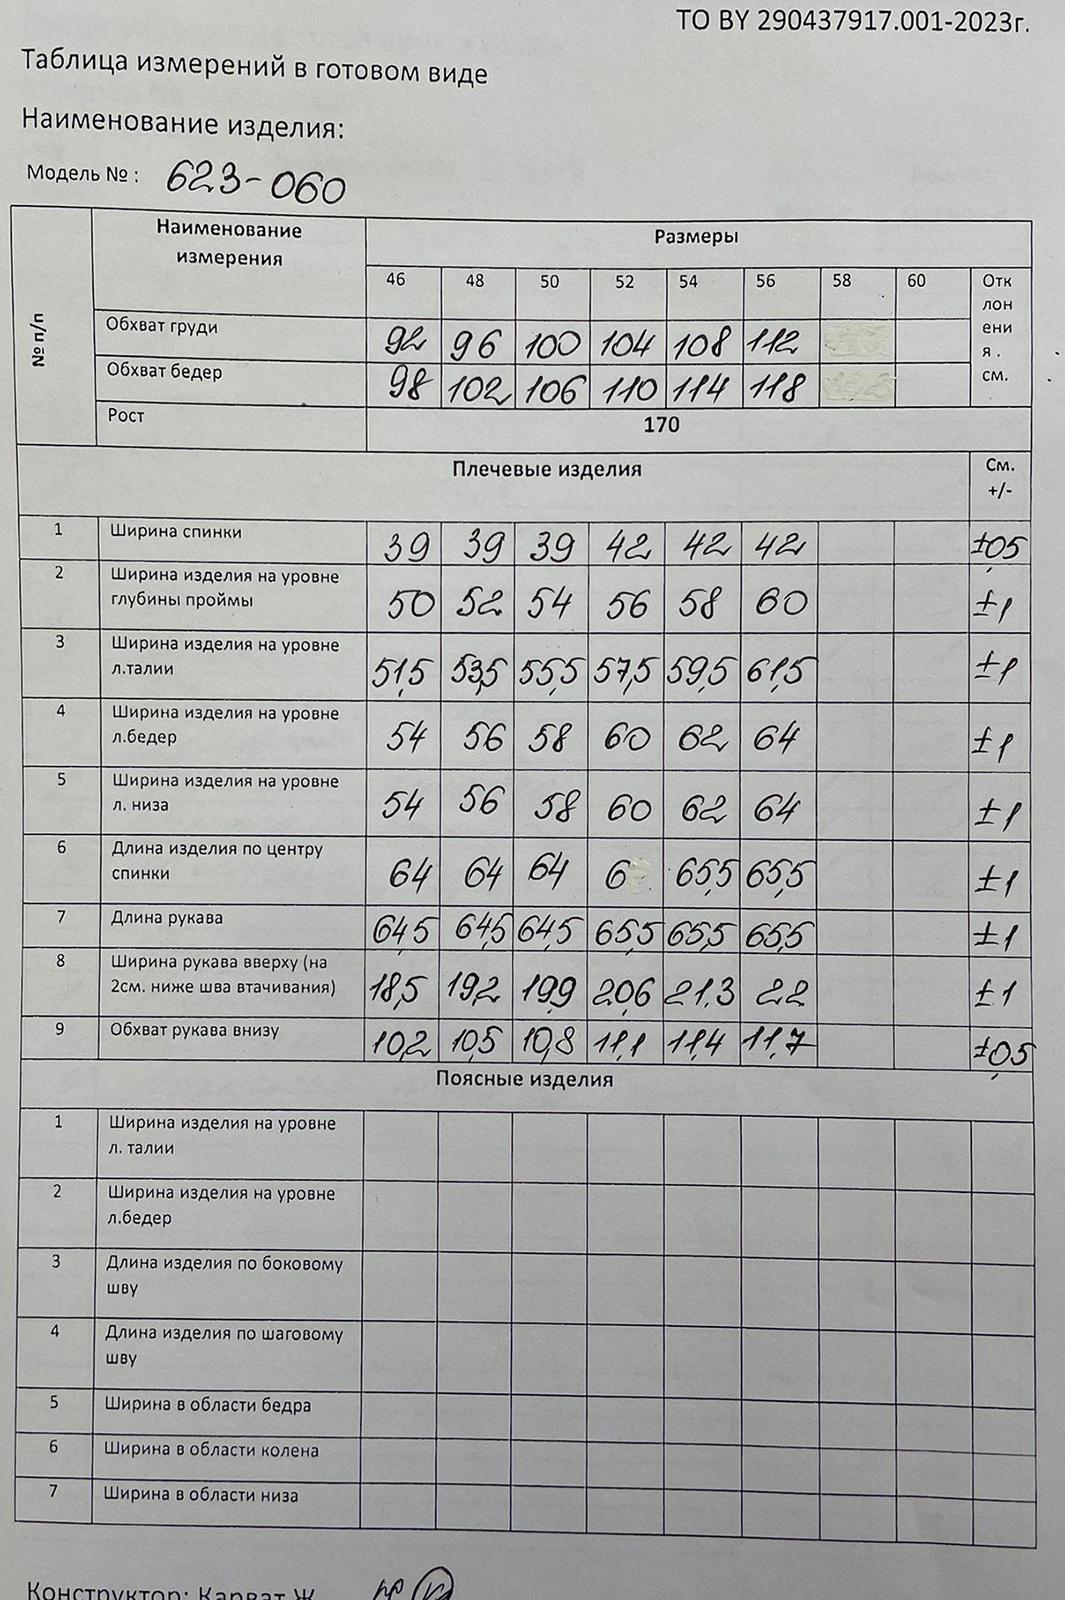 ТО BY 290437917.001-2023г.
Таблица измерений в готовом виде
Наименование изделия:
Модель № : 623-060
№ п/п Наименование измерения Размеры
46 48 50 52 54 56 58 60 Отк лон ени я . см.
Обхват груди 92 96 100 104 108 112
Обхват бедер 98 102 106 110 114 118
Рост 170
Плечевые изделия См. +/-
1 Ширина спинки 39 39 39 42 42 42 ±0,5
2 Ширина изделия на уровне глубины проймы 50 52 54 56 58 60 ±1
3 Ширина изделия на уровне л.талии 51,5 53,5 55,5 57,5 59,5 61,5 ±1
4 Ширина изделия на уровне л.бедер 54 56 58 60 62 64 ±1
5 Ширина изделия на уровне л. низа 54 56 58 60 62 64 ±1
6 Длина изделия по центру спинки 64 64 64 6 65,5 65,5 ±1
7 Длина рукава 64,5 64,5 64,5 65,5 65,5 65,5 ±1
8 Ширина рукава вверху (на 2см. ниже шва втачивания) 18,5 19,2 19,9 20,6 21,3 22 ±1
9 Обхват рукава внизу 10,2 10,5 10,8 11,1 11,4 11,7 ±0,5
Поясные изделия
1 Ширина изделия на уровне л. талии
2 Ширина изделия на уровне л.бедер
3 Длина изделия по боковому шву
4 Длина изделия по шаговому шву
5 Ширина в области бедра
6 Ширина в области колена
7 Ширина в области низа
Конструктор: Карват Ж